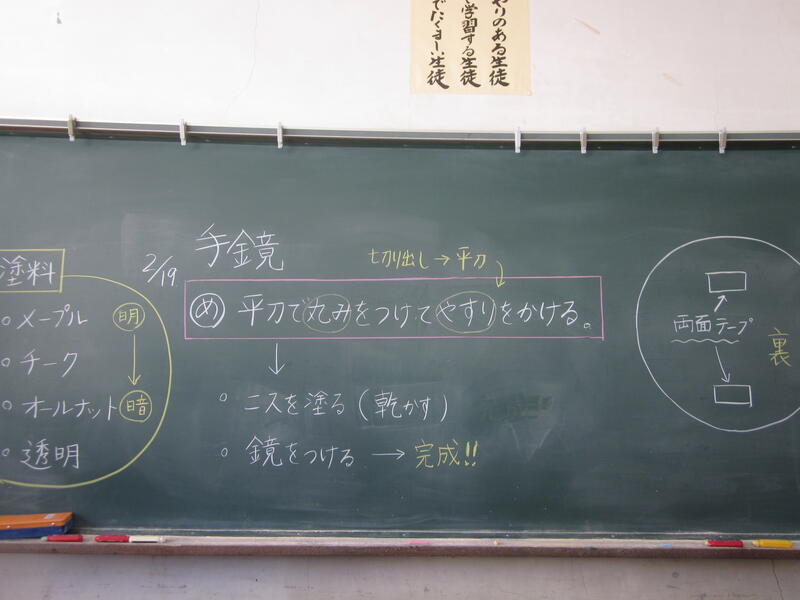 やりのある生徒
学習する生徒
でたくましい生徒
塗料
○メープル 明
○チーク
○オールナット 暗
○透明
2/19 手鏡
切り出し→平刀
め 平刀で丸みをつけてやすりをかける。
↓
○ニスを塗る(乾かす)
○鏡をつける → 完成!!
両面テープ
裏